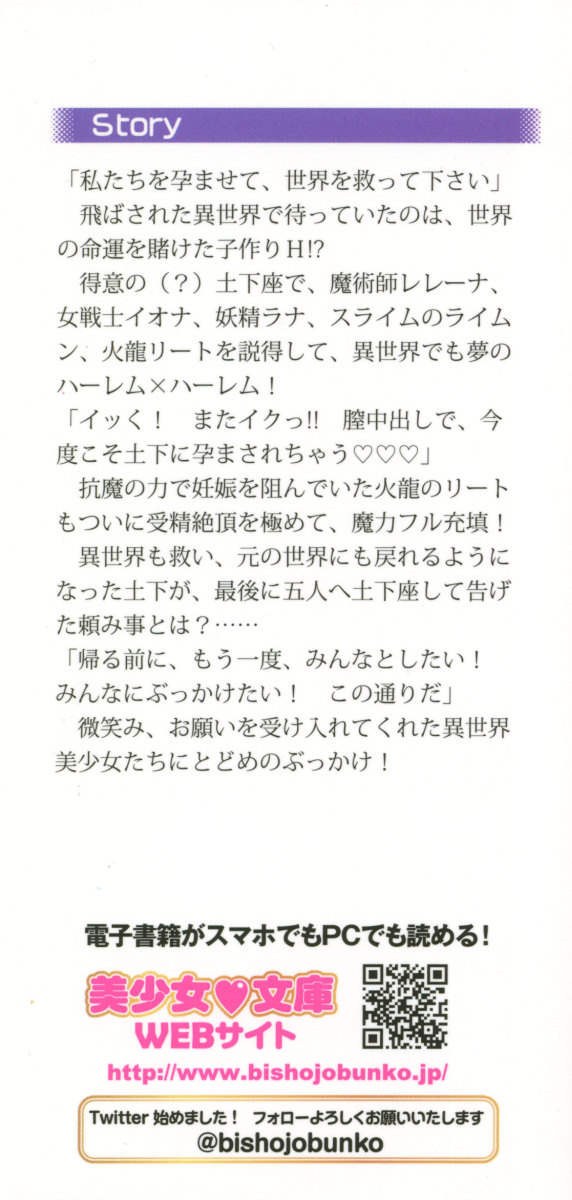 Story
「私たちを孕ませて、世界を救って下さい」
飛ばされた異世界で待っていたのは、世界
の命運を賭けた子作りH!?
得意の（？）土下座で、魔術師レレーナ、
女戦士イオナ、妖精ラナ、スライムのライム
ン、火龍リートを説得して、異世界でも夢の
ハーレム×ハーレム！
「イッく！　またイクっ!!　膣中出しで、今
度こそ土下に孕まされちゃう♡♡♡」
抗魔の力で妊娠を阻んでいた火龍のリート
もついに受精絶頂を極めて、魔力フル充填！
異世界も救い、元の世界にも戻れるように
なった土下が、最後に五人へ土下座して告げ
た頼み事とは？……
「帰る前に、もう一度、みんなとしたい！
みんなにぶっかけたい！　この通りだ」
微笑み、お願いを受け入れてくれた異世界
美少女たちにとどめのぶっかけ！
電子書籍がスマホでもPCでも読める！
美少女♥文庫
WEBサイト
http://www.bishojobunko.jp/
Twitter 始めました！　フォローよろしくお願いいたします
@bishojobunko